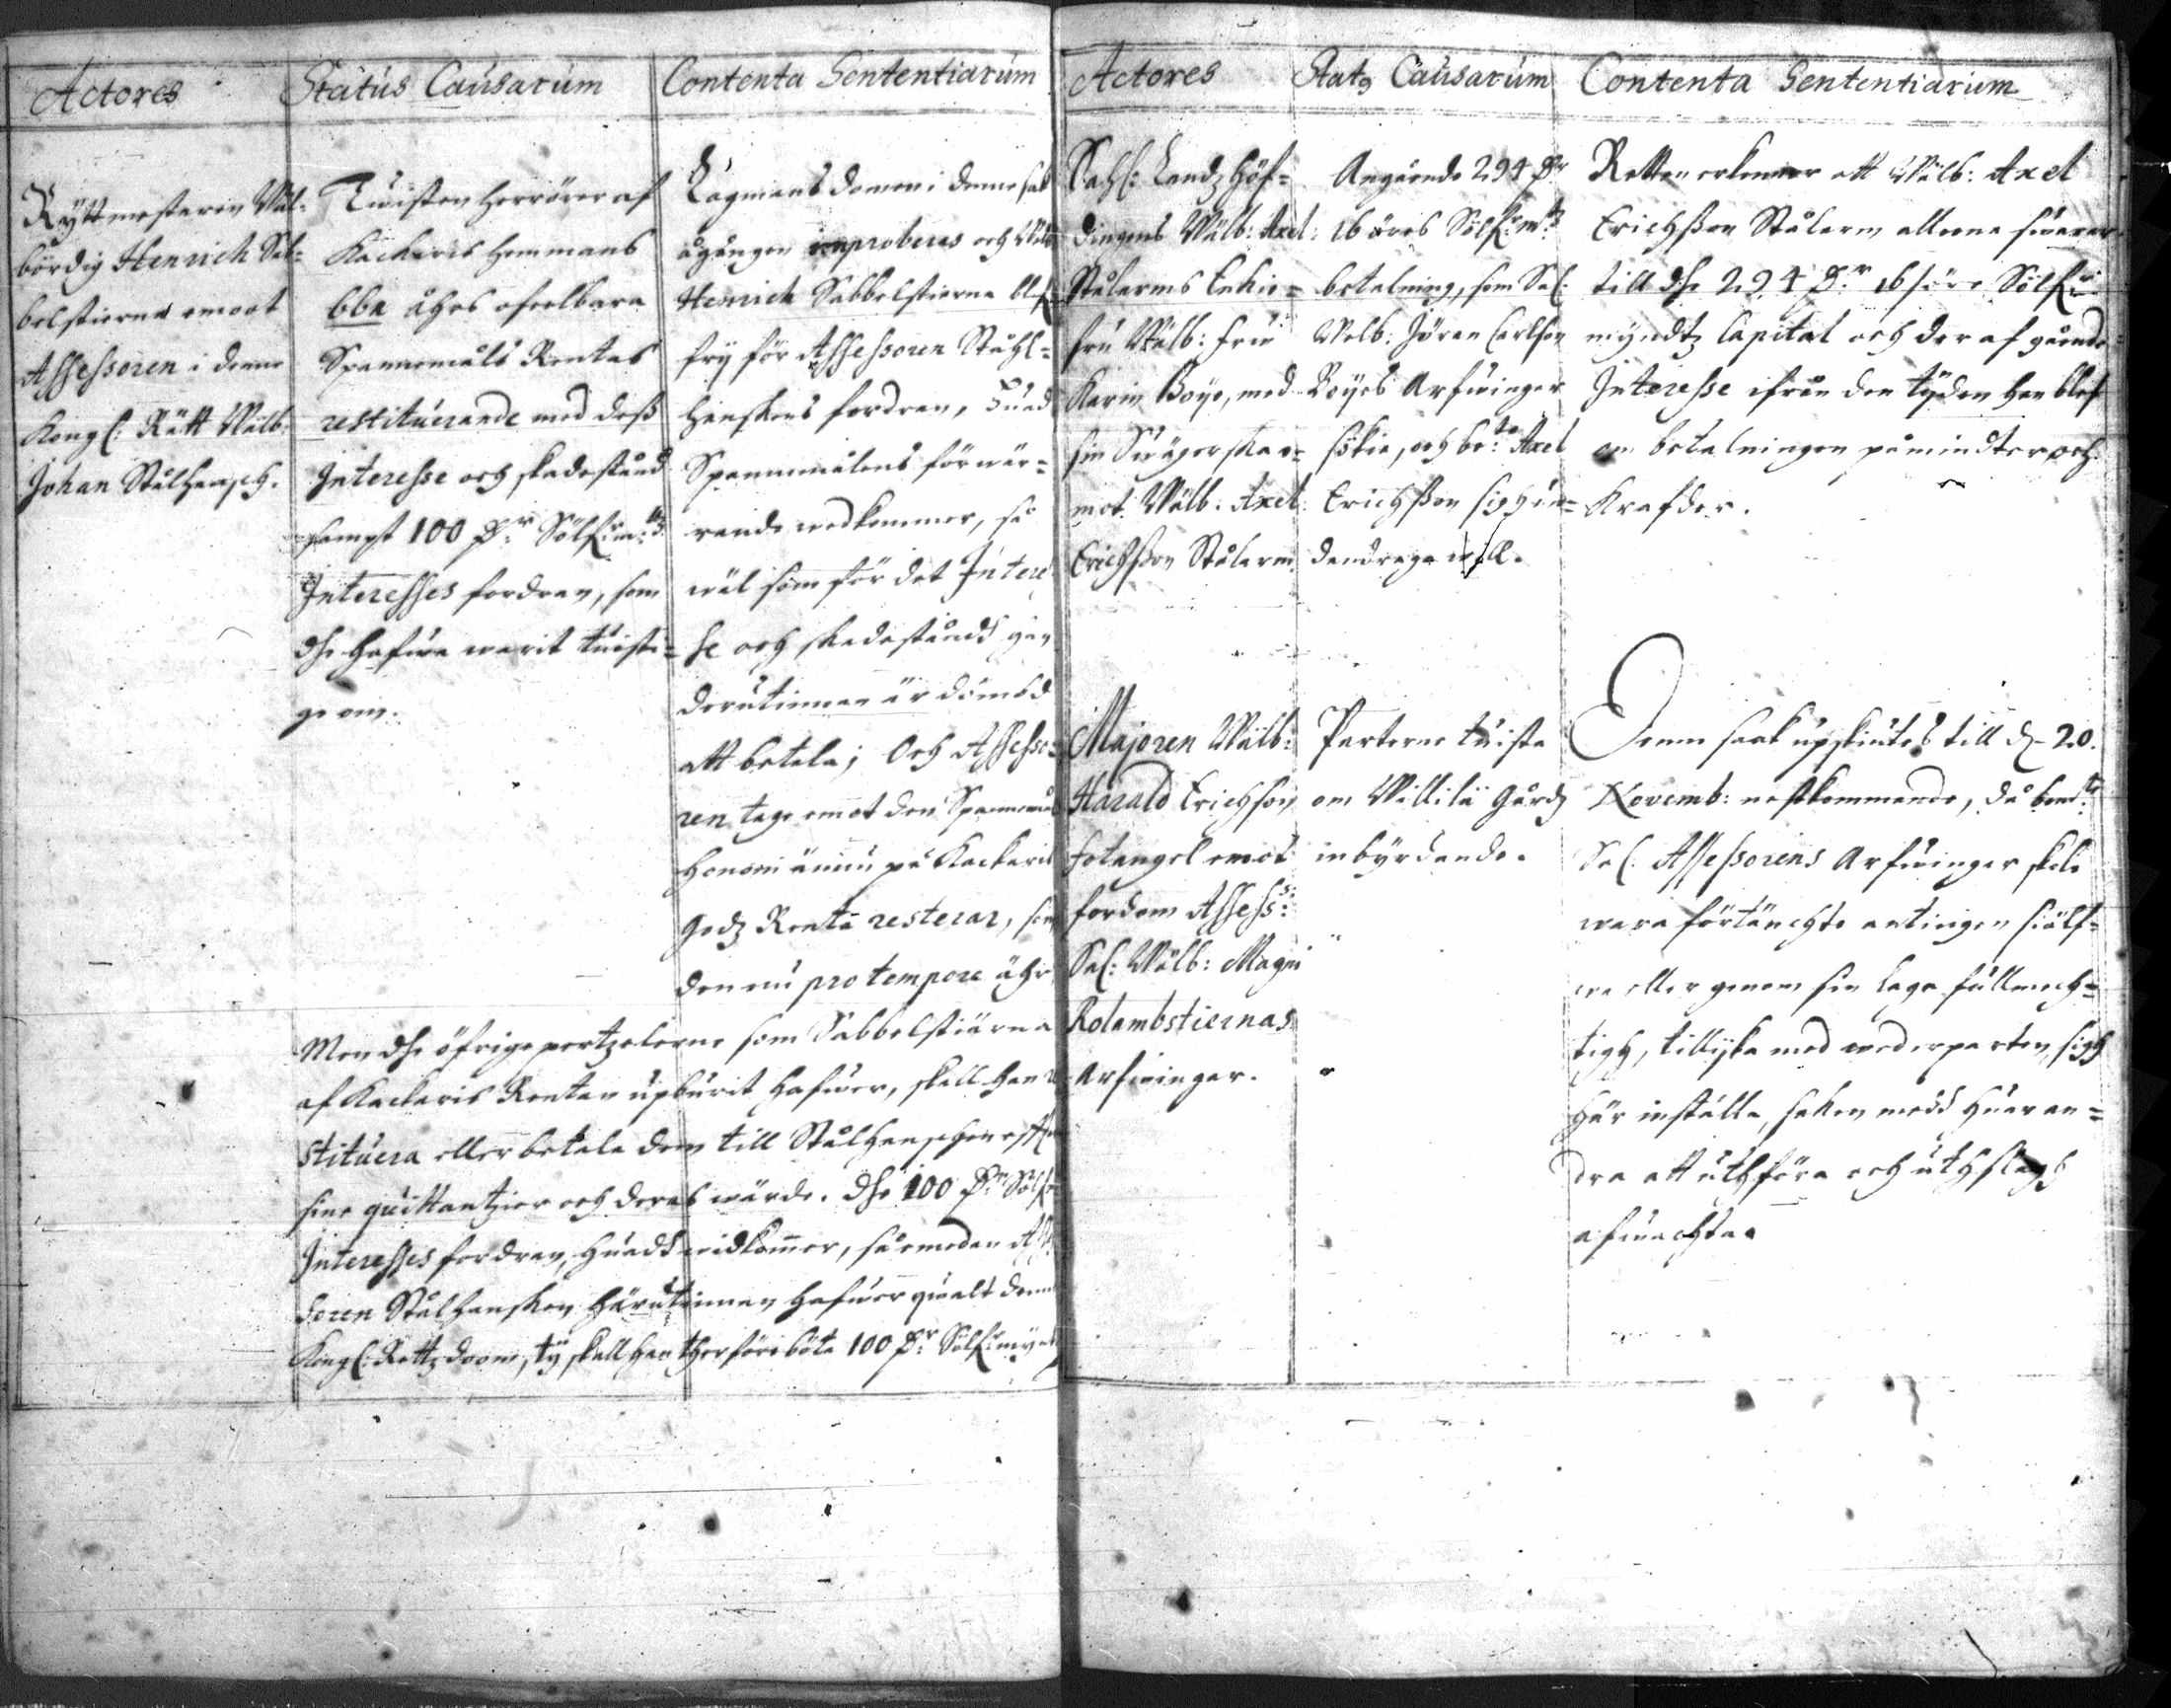 Actores
Status Causarum
Contenta Sententiarum
Ryttmesteren Wäl-
bördig Henrich Sab-
belstierna emoot
Assessoren i denne
Kongl: Rätt Wälb:
Johan Stålhansch.
Twisten herrörer af
Kackaris hemmans
åhrs ofeelbara
Spannemåls Rentas
restituerande med dess
Interesse och skadestånd
sampt 100 Dr Sölfr:mtz
Interesses fordran, som
dhe hafwa warit twisti-
ge om.
Lagmans domen i denne sak
ågången improberas och Wälb
Henrich Sabbelstierna blif
fry för Assessoren Ståhl-
hanskens fordran, Huad
Spannmålens förwär-
rande wedkommer, så
wäl som för det Intere
sse och skadeståndh han
derutinnan är dömbd
att betala; Och Assesso-
ren tage emot den Spannemål
honom ännu på Kackaris
godz Renta resterar, som
den nu pro tempore ähr
Men dhe öfrige pertzelerne som Sabbelstierna
af Kackaris Rentan upburit hafwer, skall han re
stituera eller betala dem till Stålhanschen efft
sine quittantzier och deras wärde. Dhe 100 Dr Sölf
Interesses fordran, huadh widkommer, såsom den Asse
soren Stålhansken härutinnan hafwer qwalt denne
Kongl: Rettz doom, ty skall han therföre böta 100 Dr Sölfr:mynt
Actores
Stat9 Causarum
Contenta Sententiarum
Sahl: Landzhöf-
dingens Wälb: Axel
Stålarms Enkie-
fru Wälb: Fru
Karin Boye, med
sin Swägerska e-
mot Wälb: Axel
Erichsson Stålarm
Angående 294 Dr
16 öres Sölfr:mtz
betalning, som Sal:
Welb: Jören Carlson
Boyes Arfwinger
sökia, och bete Axel
Erichsson sigh un-
dandraga will.
Retten erkenner att Wälb: Axel
Erichsson Stålarm allena swarar
till dhe 294 Dr 16 öre Sölfr
myndtz Capital och der af gående
Interesse ifrån den tyden han blef
om betalningen påmindter och
Krafder.
Majoren Wälb:
Harald Erichson
Fotangel emot
fordom Assess:s
Sal: Wälb: Magni
Rolambstiernas
Arfwingar.
Parterne twista
om Willilä Gårdz
inbyrdande.
Denne saak upskiutes till d. 20.
Novemb: nestkommande, då bemte
Sal: Assessorens Arfwingar skole
wara förtänchte antingen siälf-
we eller genom sin laga fullmech-
tigh, tillyka med wederparten sigh
här inställa, saken medh huaran-
dra att uthföra och uthslagh
afwachta.